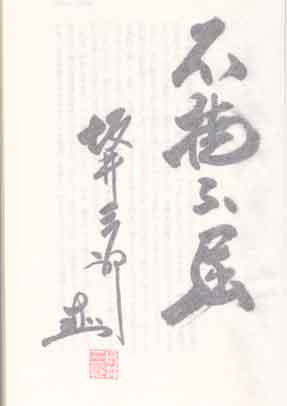 不撓不屈
坂井三郎